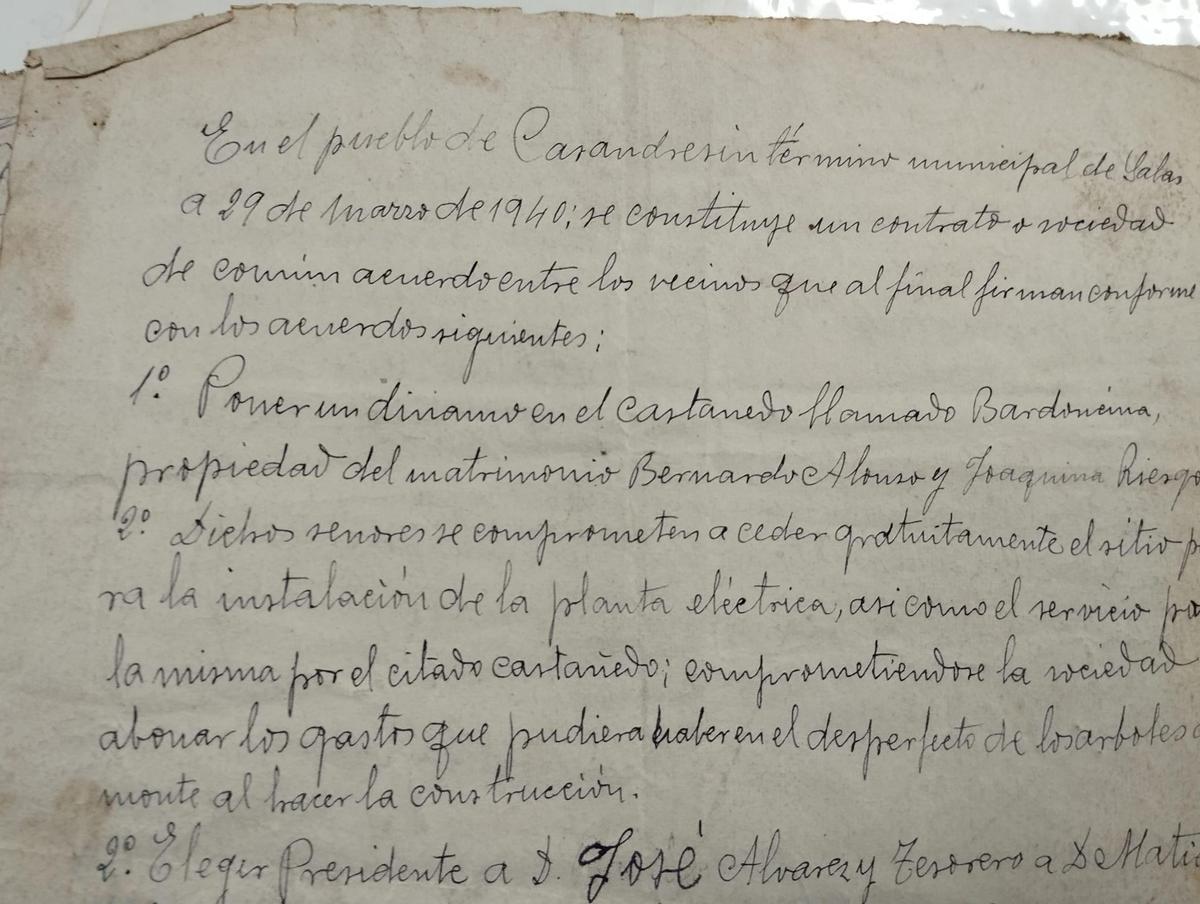 En el pueblo de Casandresin término municipal de Salas
a 29 de marzo de 1940; se constituye un contrato o sociedad
de común acuerdo entre los vecinos que al final firman conforme
con los acuerdos siguientes;
1º Poner un dinamo en el castanedo llamado Bardoncina,
propiedad del matrimonio Bernardo Alonso y Joaquina Riesgo
2º. Dichos senores se comprometen a ceder gratuitamente el sitio p
ra la instalación de la planta eléctrica, asi como el servicio pa
la misma por el citado castañedo; comprometiendose la sociedad
abonar los gastos que pudiera haber en el desperfecto de los arboles o
monte al hacer la construcción.
2º. Elegir Presidente a D. José Alvarez y Tesorero a D Mati